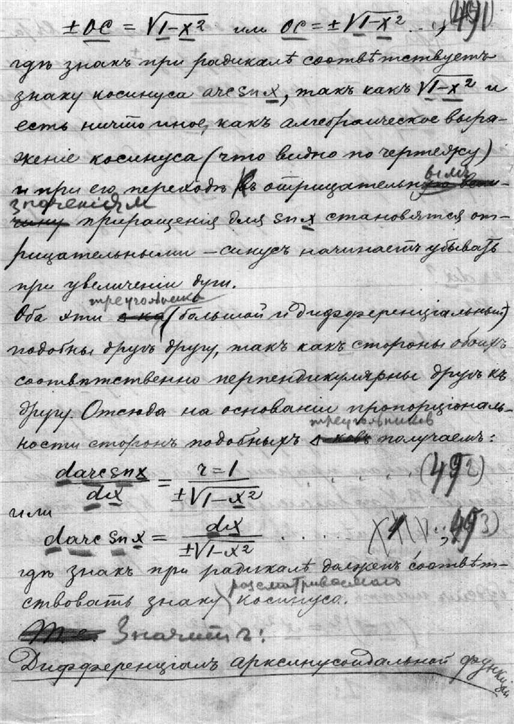 ± OC = √1-x² или OC = ±√1-x² ..., 491)
гдѣ знакъ при радикалѣ соотвѣтствуетъ
знаку косинуса arc sn x, такъ какъ √1-x² и
есть ничто иное, какъ алгебраическое выра-
женіе косинуса (что видно по чертежу)
и при его переходѣ къ отрицательнымъ
значеніям приращенія для sn x становятся от-
рицательными – синусъ начинаетъ убывать
при увеличеніи дуги.
Оба эти треугольника (большой и дифференціальный)
подобны другъ другу, такъ какъ стороны обоихъ
соотвѣтственно перпендикулярны другъ къ
другу. Отсюда на основаніи пропорціональ-
ности сторонъ подобныхъ треугольников получаемъ:
d arc sn x / dx = r=1 / ±√1-x² . . . . (492)
или
d arc sn x = dx / ±√1-x² . . . . . XXIV; 493)
гдѣ знакъ при радикалѣ долженъ соотвѣт-
ствовать знаку рассматриваемого косинуса.
Значитъ:
Дифференціалъ арксинусоидальной функціи